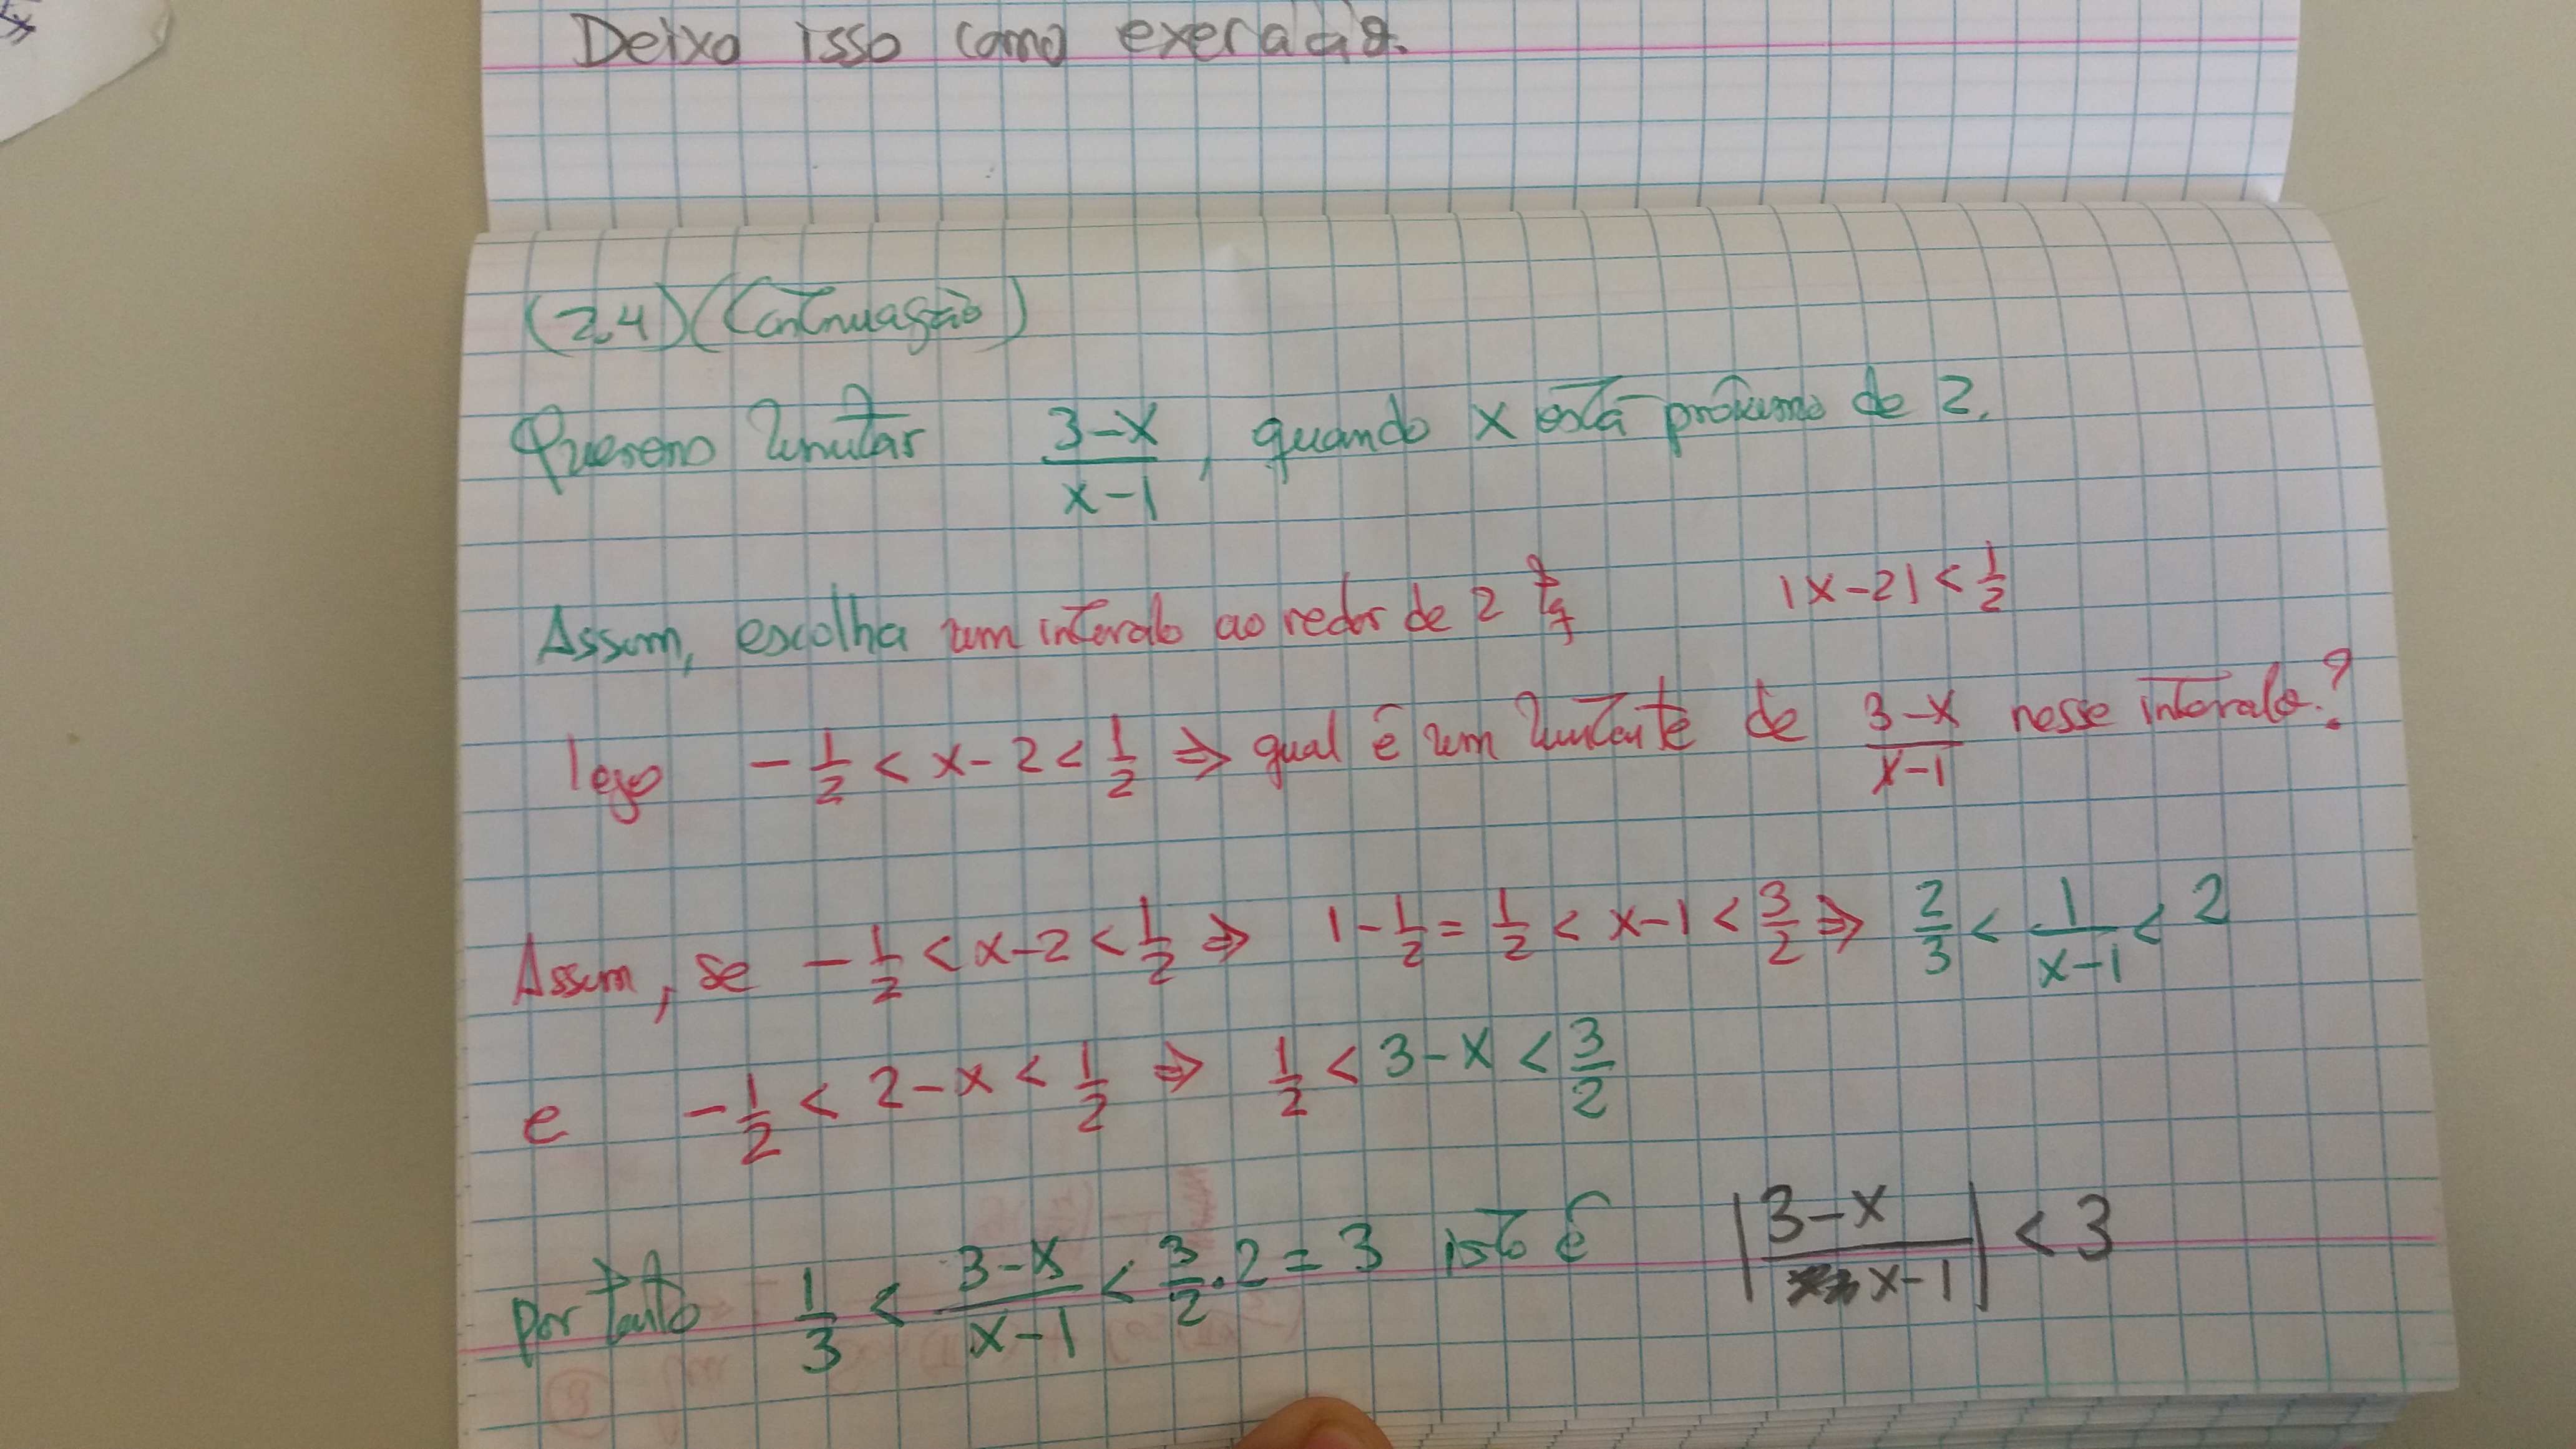 Deixo isso como exercício.
(2.4) (Continuação)
Queremo limitar $\frac{3-x}{x-1}$, quando x está próximo de 2.
Assim, escolha um intervalo ao redor de 2 tq |x-2| < $\frac{1}{2}$
logo $-\frac{1}{2} < x-2 < \frac{1}{2}$ ⇒ qual é um limitante de $\frac{3-x}{x-1}$ nesse intervalo?
Assim, se $-\frac{1}{2} < x-2 < \frac{1}{2}$ ⇒ $1-\frac{1}{2} = \frac{1}{2} < x-1 < \frac{3}{2}$ ⇒ $\frac{2}{3} < \frac{1}{x-1} < 2$
e $-\frac{1}{2} < 2-x < \frac{1}{2}$ ⇒ $\frac{1}{2} < 3-x < \frac{3}{2}$
Portanto $\frac{1}{3} < \frac{3-x}{x-1} < \frac{3}{2} \cdot 2 = 3$ isto é $\left|\frac{3-x}{x-1}\right| < 3$